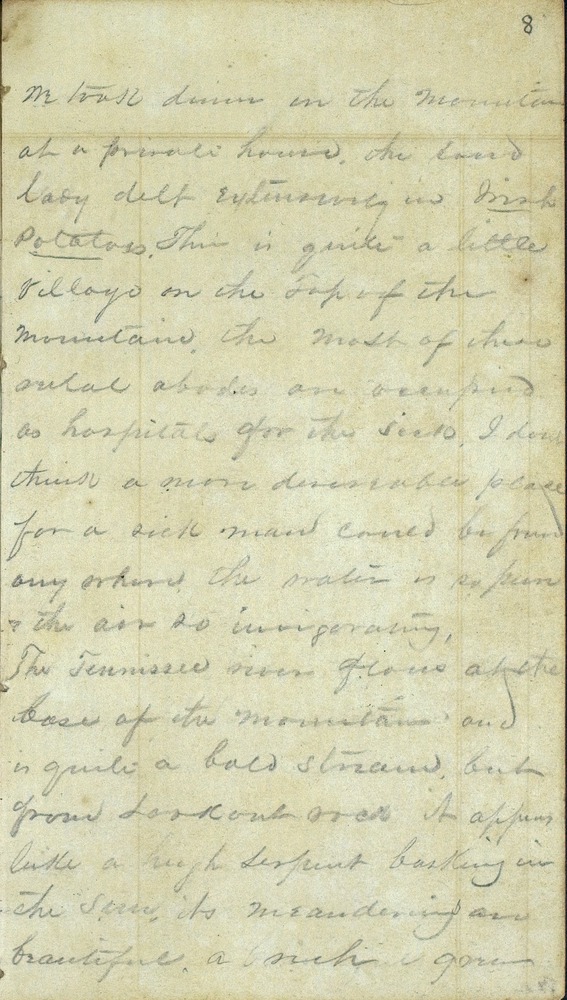 8
We took dinner on the Mountain
at a private house, the land
lady delt extensively in Irish
Potatoes. This is quite a little
village on the Top of the
Mountain, the most of these
abodes are occupied
as hospitals for the sick, I dont
think a more desireable place
for a sick man could be found
any where, the water is so pure
& the air so invigorating,
The Tennissee river flows at the
base of the mountain and
is quite a bold stream, but
from Lookout rock it appears
like a hugh serpent basking in
the Sun, its meanderings are
beautiful, a